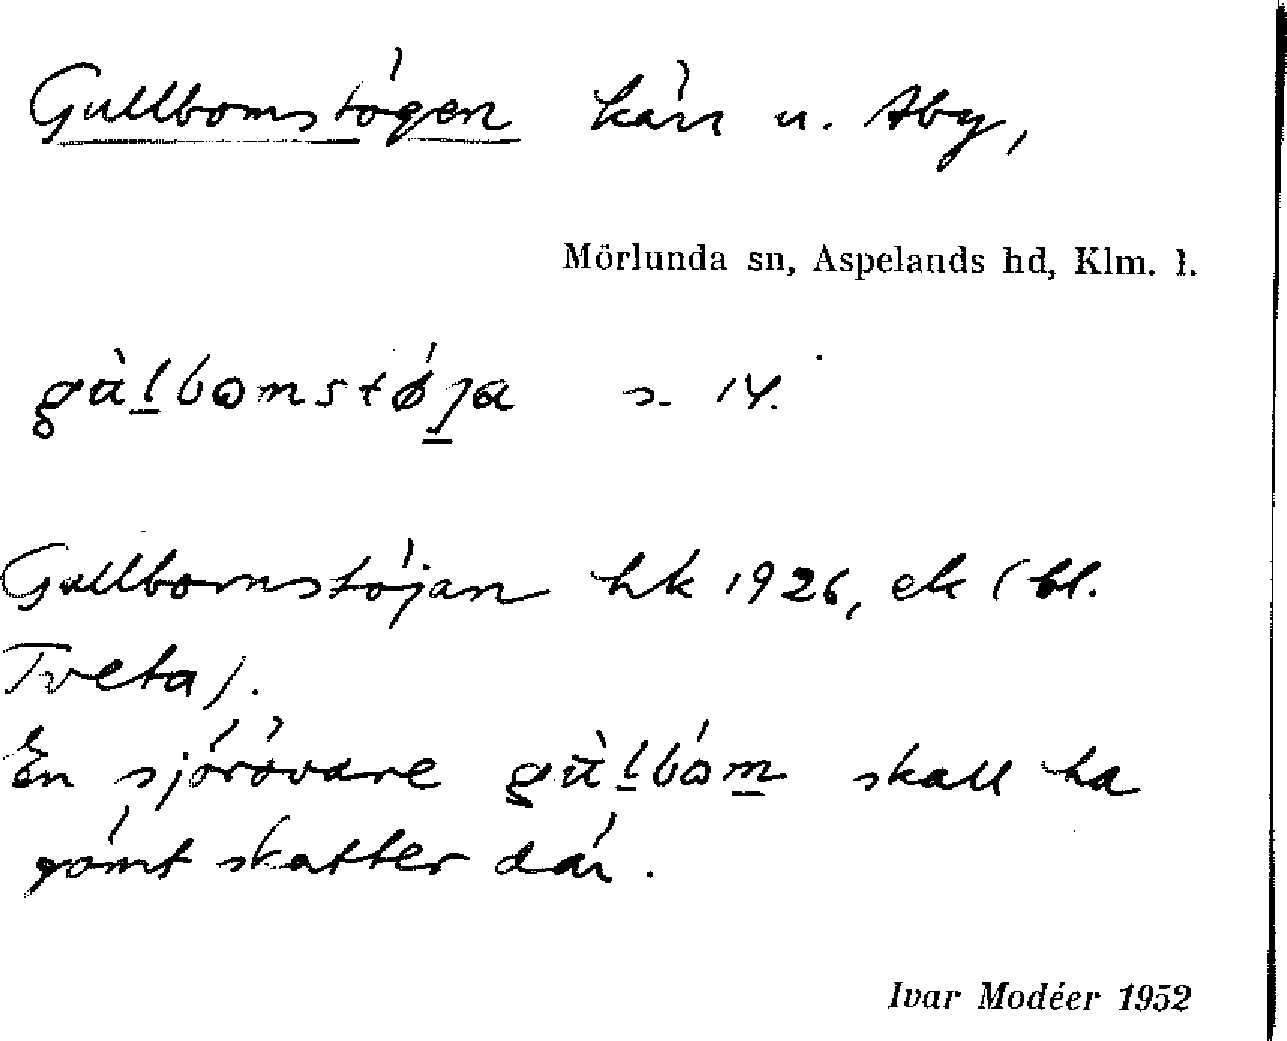 Gullbomstögen kärr u. Åby,
Mörlunda sn, Aspelands hd, Klm. l.
gùl̠bomstǿja s. 14.
Gullbomstöjan hk 1926, ek (bl.
Tveta).
En sjörövare gùl̠bóm̠ skall ha
gömt skatter där.
Ivar Modéer 1952